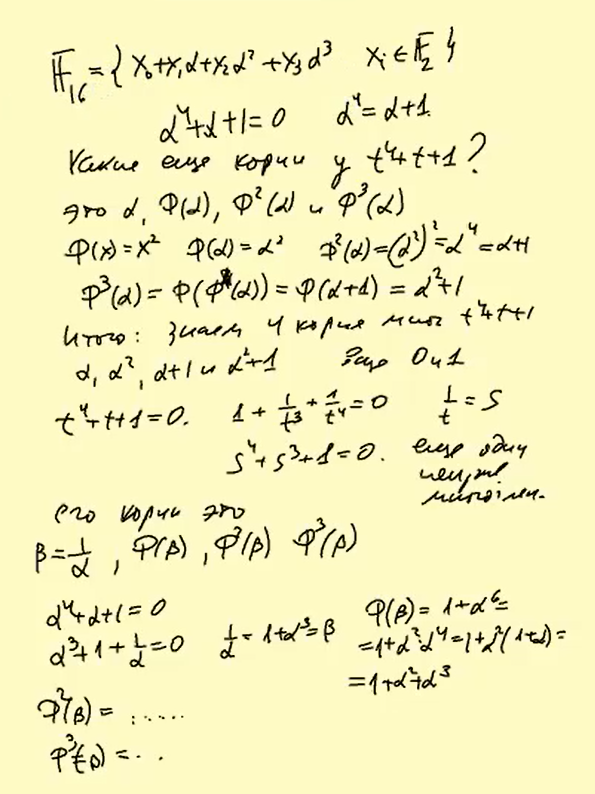 𝔽₁₆ = { x₀+x₁α+x₂α²+x₃α³   xᵢ ∈ 𝔽₂ }
α⁴+α+1=0   α⁴=α+1
Какие еще корни у t⁴+t+1?
это α, Φ(α), Φ²(α) и Φ³(α)
Φ(x)=x²   Φ(α)=α²   Φ²(α)=(α²)²=α⁴=α+1
Φ³(α)=Φ(Φ²(α))=Φ(α+1)=α²+1
Итого: знаем 4 корня мног t⁴+t+1
α, α², α+1 и α²+1   Еще 0 и 1
t⁴+t+1=0.   1+1/t³+1/t⁴=0   1/t=S
S⁴+S³+1=0.   еще один
неприв.
многочлен.
его корни это
β=1/α, Φ(β), Φ²(β) Φ³(β)
α⁴+α+1=0
α³+1+1/α=0   1/α=1+α³=β
Φ(β)=1+α⁶=
=1+α²α⁴=1+α²(1+α)=
=1+α²+α³
Φ²(β)=......
Φ³(β)=..